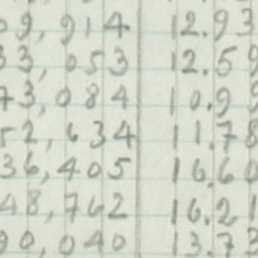 09,914 12.93
33,053 12.59
73,084 10.99
52,634 11.78
36,405 16.60
48,762 16.21
90,040 13.73